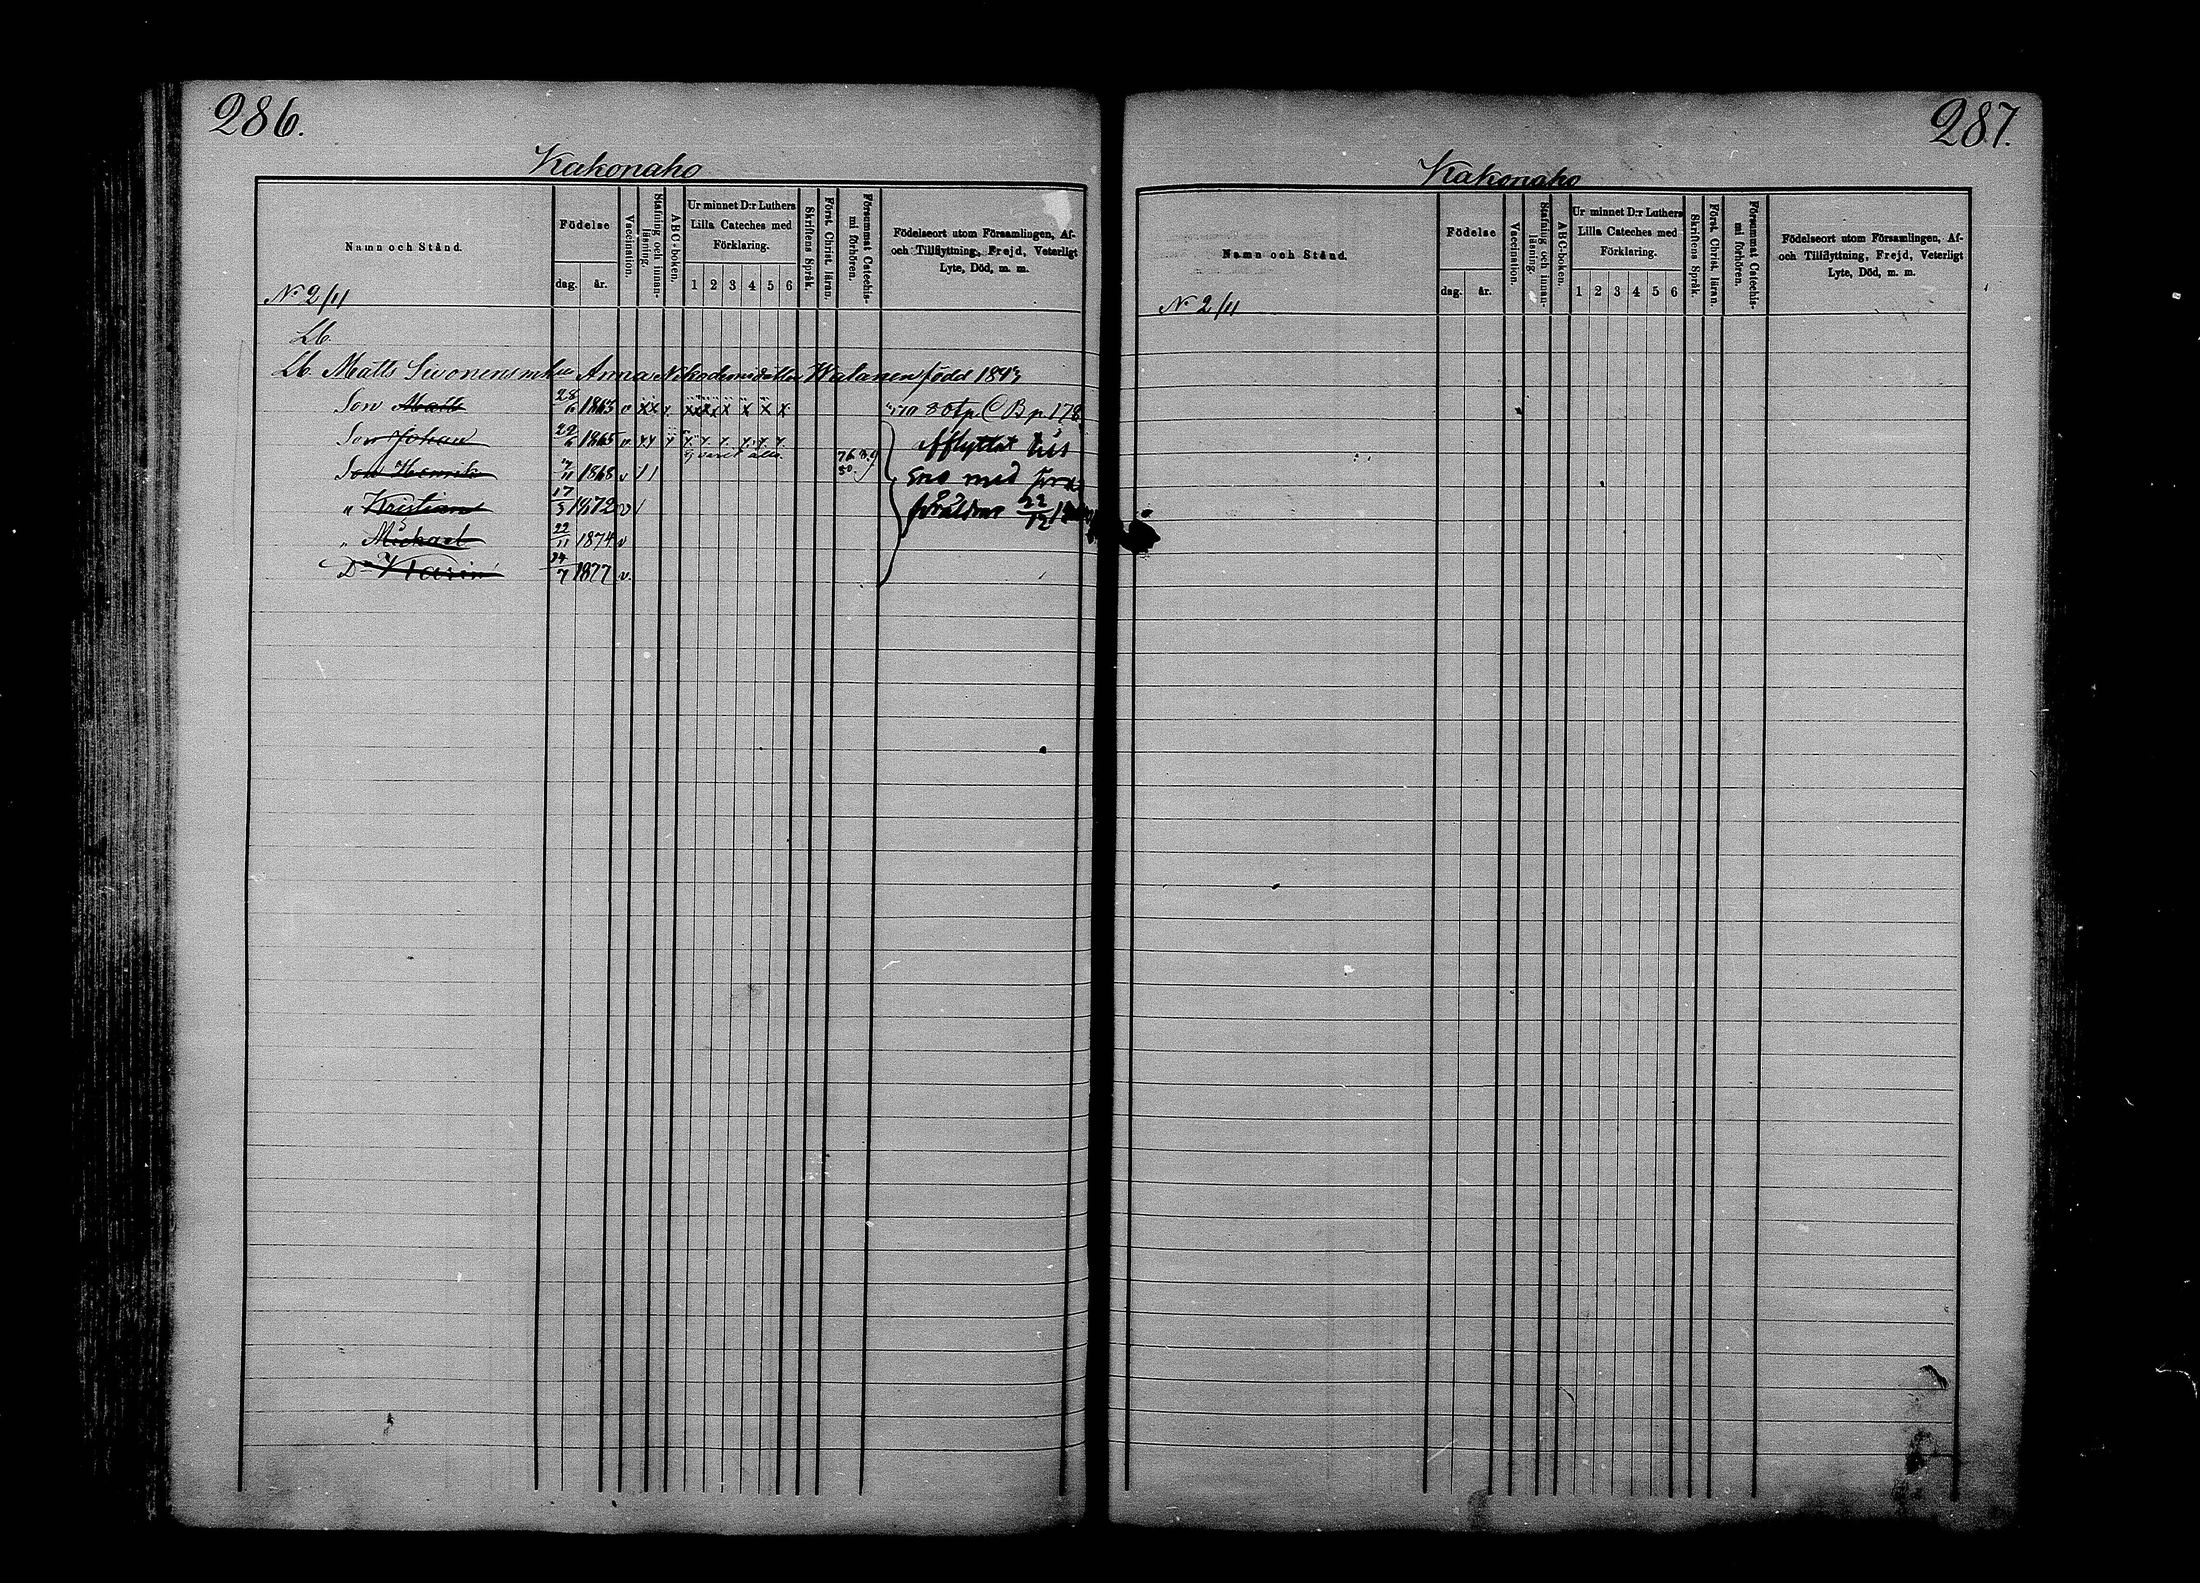 286.
Kakonaho
Namn och Stånd.
Födelse
dag. år.
Vaccination.
Stafning och innan-
läsning.
ABC-boken.
Ur minnet D:r Luthers
Lilla Cateches med
Förklaring.
1 2 3 4 5 6
Skriftens Språk.
Först. Christ. läran.
Försummat Catechis-
mi förhören.
Födelseort utom Församlingen, Af-
och Tillflyttning, Frejd, Veterligt
Lyte, Död, m. m.
No 2/11
Lb.
Lb. Matts Sivonens Anna Nikodemidotter född 1843
Son Matts 28/6 1863 v x x x x x x x p C B p. 178
Son Johan 29/6 1865 v Afflyttat
Son Henrik 1868 v 1 1 76 80 Eno med
" Kristian 17/3 1872 v 1 föräldrar 22/12
" Michael 22/11 1874 v
Dr Karin 24/7 1877 v.
287.
Kakonaho
Namn och Stånd.
Födelse
dag. år.
Vaccination.
Stafning och innan-
läsning.
ABC-boken.
Ur minnet D:r Luthers
Lilla Cateches med
Förklaring.
1 2 3 4 5 6
Skriftens Språk.
Först. Christ. läran.
Försummat Catechis-
mi förhören.
Födelseort utom Församlingen, Af-
och Tillflyttning, Frejd, Veterligt
Lyte, Död, m. m.
No 2/11